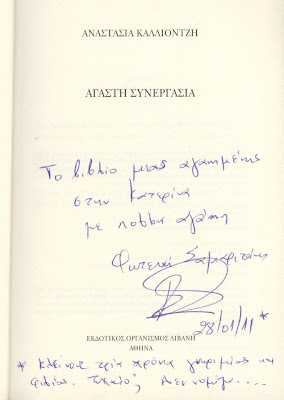 ΑΝΑΣΤΑΣΙΑ ΚΑΛΛΙΟΝΤΖΗ
ΑΓΑΣΤΗ ΣΥΝΕΡΓΑΣΙΑ
Το βιβλίο μιας αγαπημένης
στην Κατερίνα
με πολλή αγάπη
Φωτεινή
28/01/11 *
ΕΚΔΟΤΙΚΟΣ ΟΡΓΑΝΙΣΜΟΣ ΛΙΒΑΝΗ
ΑΘΗΝΑ
* κλείνουμε τρία χρόνια γνωριμίας και
φιλίας. Τυχαίο; Δεν νομίζω....